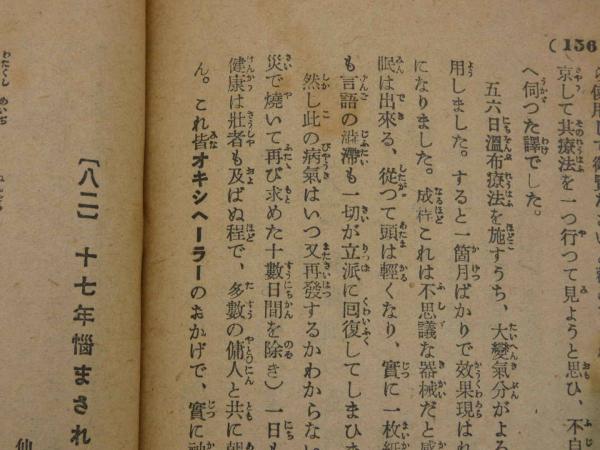 (156
京して其療法を一つ行つて見ようと思ひ、不自
へ伺つた譯でした。
五六日溫布療法を施すうち、大變氣分がよろ
用しました。すると一箇月ばかりで效果現はれ
になりました。成程これは不思議な器械だと感
眠は出來る、從つて頭は輕くなり、實に一枚紙
も言語の澁滯も一切が立派に囘復してしまひま
然し此の病氣はいつ又再發するかわからない
災で燒いて再び求めた十數日間を除き）一日も
健康は壯者も及ばぬ程で、多數の傭人と共に朝
ん。これ皆オキシヘーラーのおかげで、實に神
〔八二〕 十七年惱まされ
仙